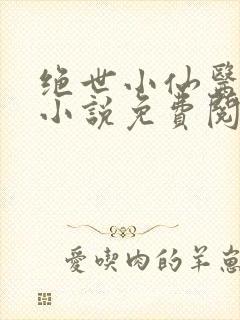 绝世小仙醫
小說免費閱
愛喫肉的羊崽